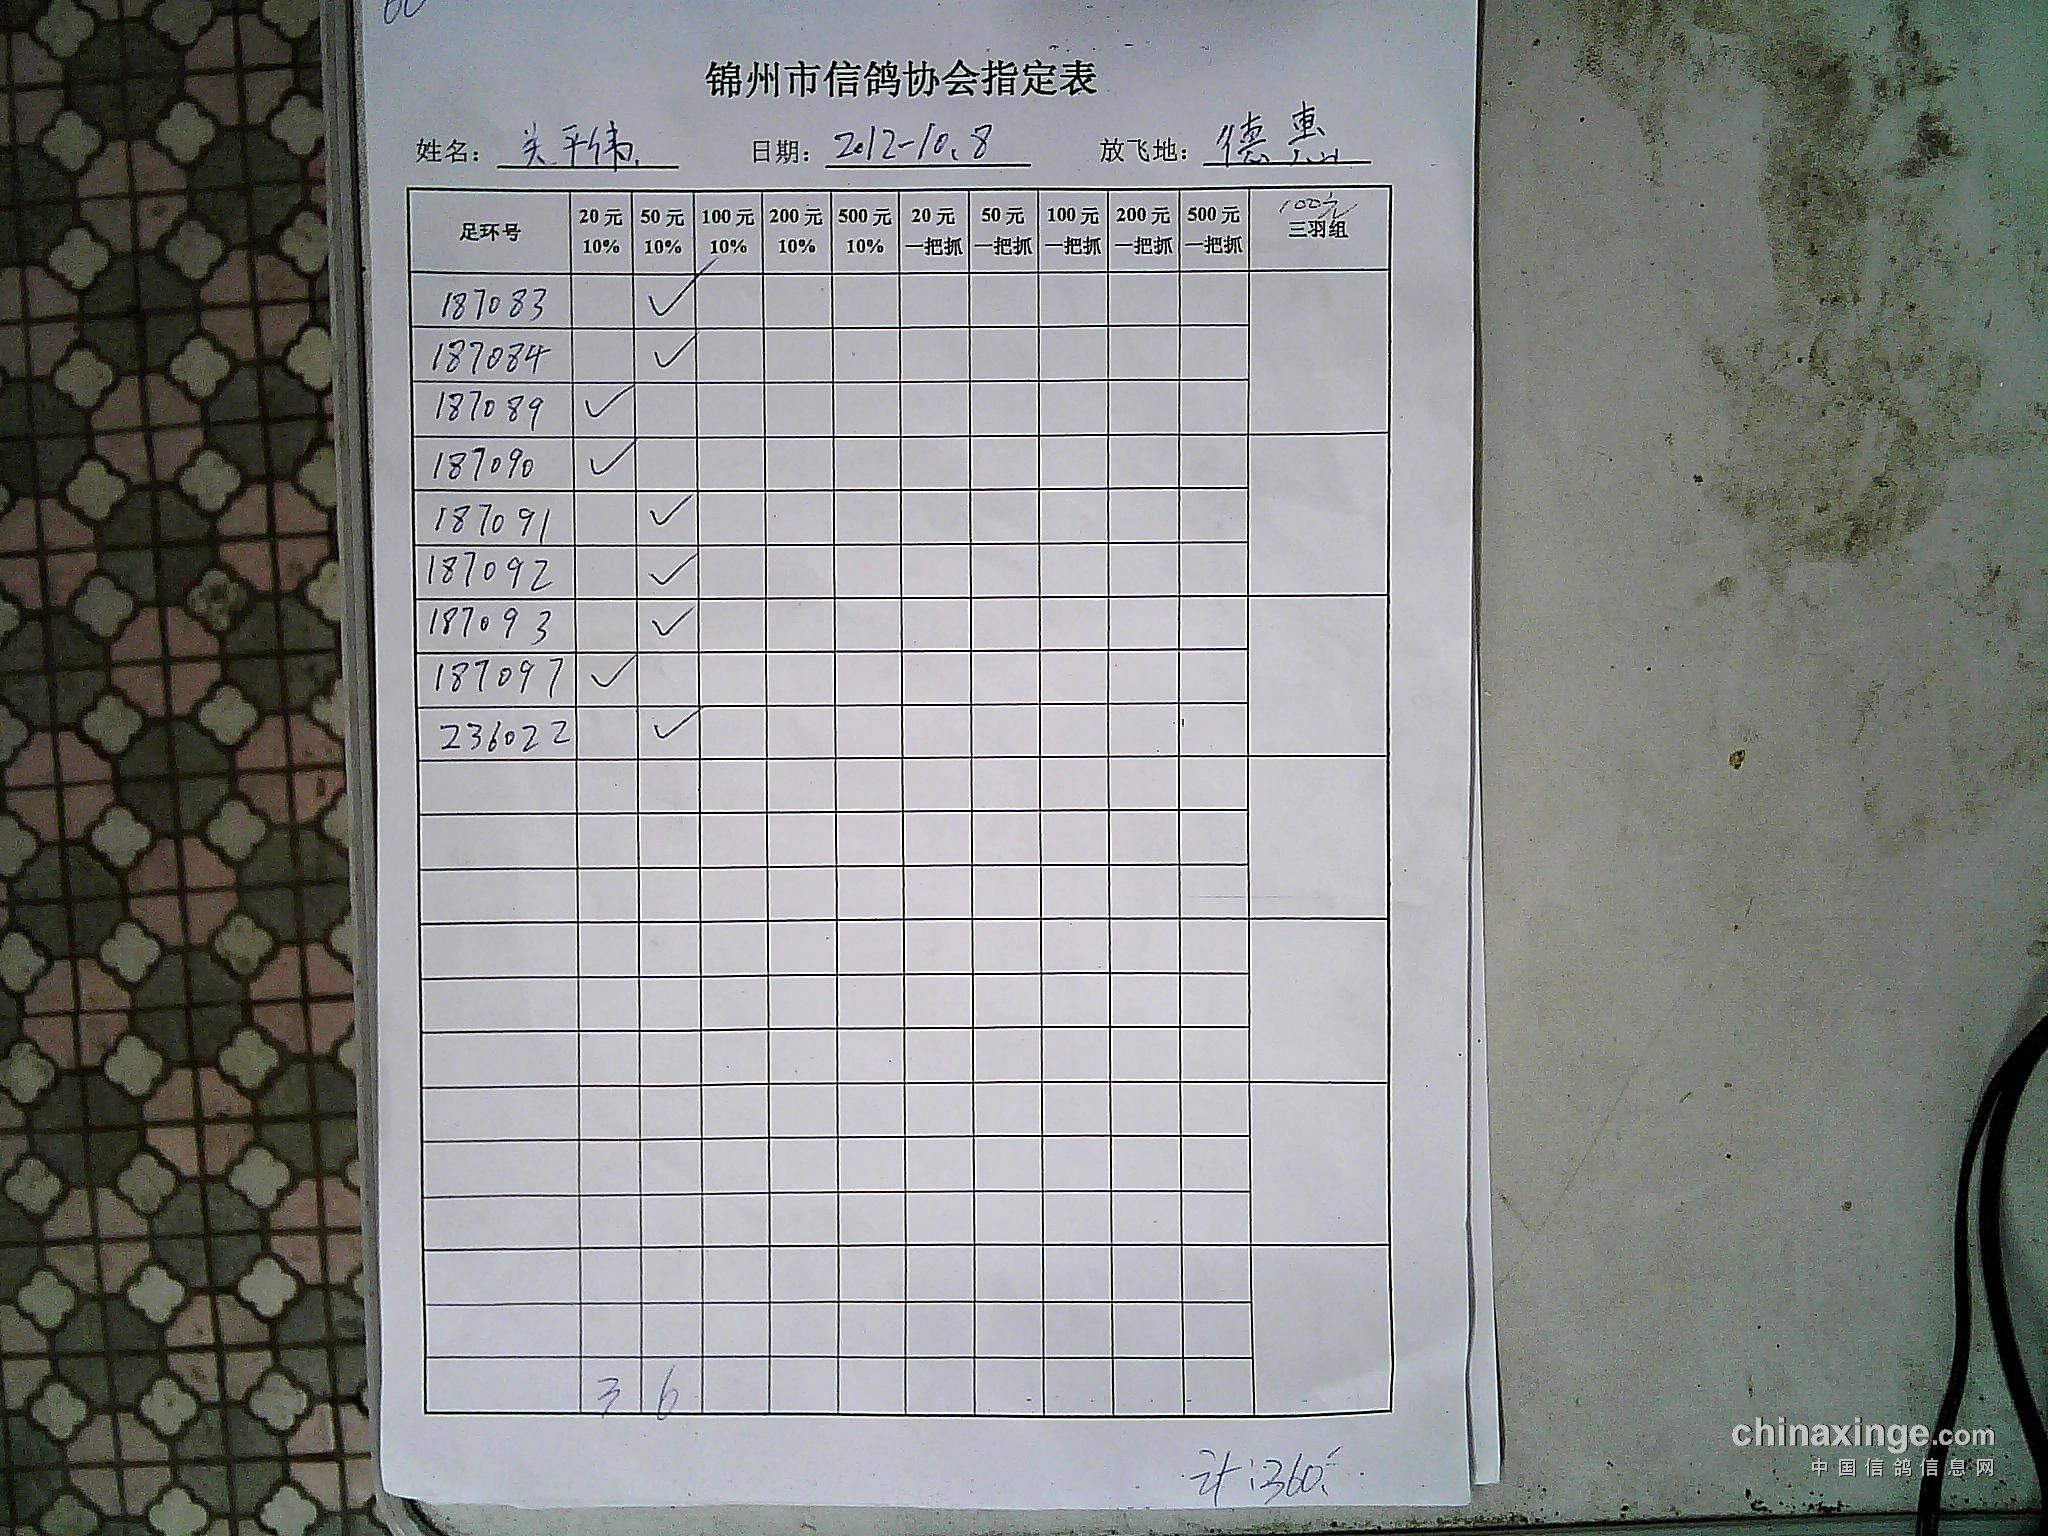 锦州市信鸽协会指定表
姓名： 关平伟 日期： 2012-10.8 放飞地： 德惠
足环号 20元 10% 50元 10% 100元 10% 200元 10% 500元 10% 20元 一把抓 50元 一把抓 100元 一把抓 200元 一把抓 500元 一把抓 100元 三羽组
187083 ✓
187084 ✓
187089 ✓
187090 ✓
187091 ✓
187092 ✓
187093 ✓
187097 ✓
236022 ✓
3 6
计:360.
chinaxinge.com
中国信鸽信息网